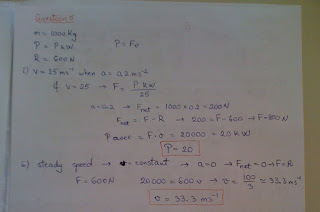 Question 5
m = 1000 Kg
P = P kW    P = Fv
R = 600N
i) v = 25 ms⁻¹ when a = 0.2 ms⁻²
if v = 25 → F = P kW / 25
a = 0.2 → Fnet = 1000 × 0.2 = 200N
Fnet = F - R → 200 = F - 600 → F = 800 N
Power = F · v = 20000 = 20 KW
P = 20
ii) steady speed → v = constant → a = 0 → Fnet = 0 → F = R
F = 600N    20000 = 600 v → v = 100/3 ≈ 33.3 ms⁻¹
v = 33.3 ms⁻¹